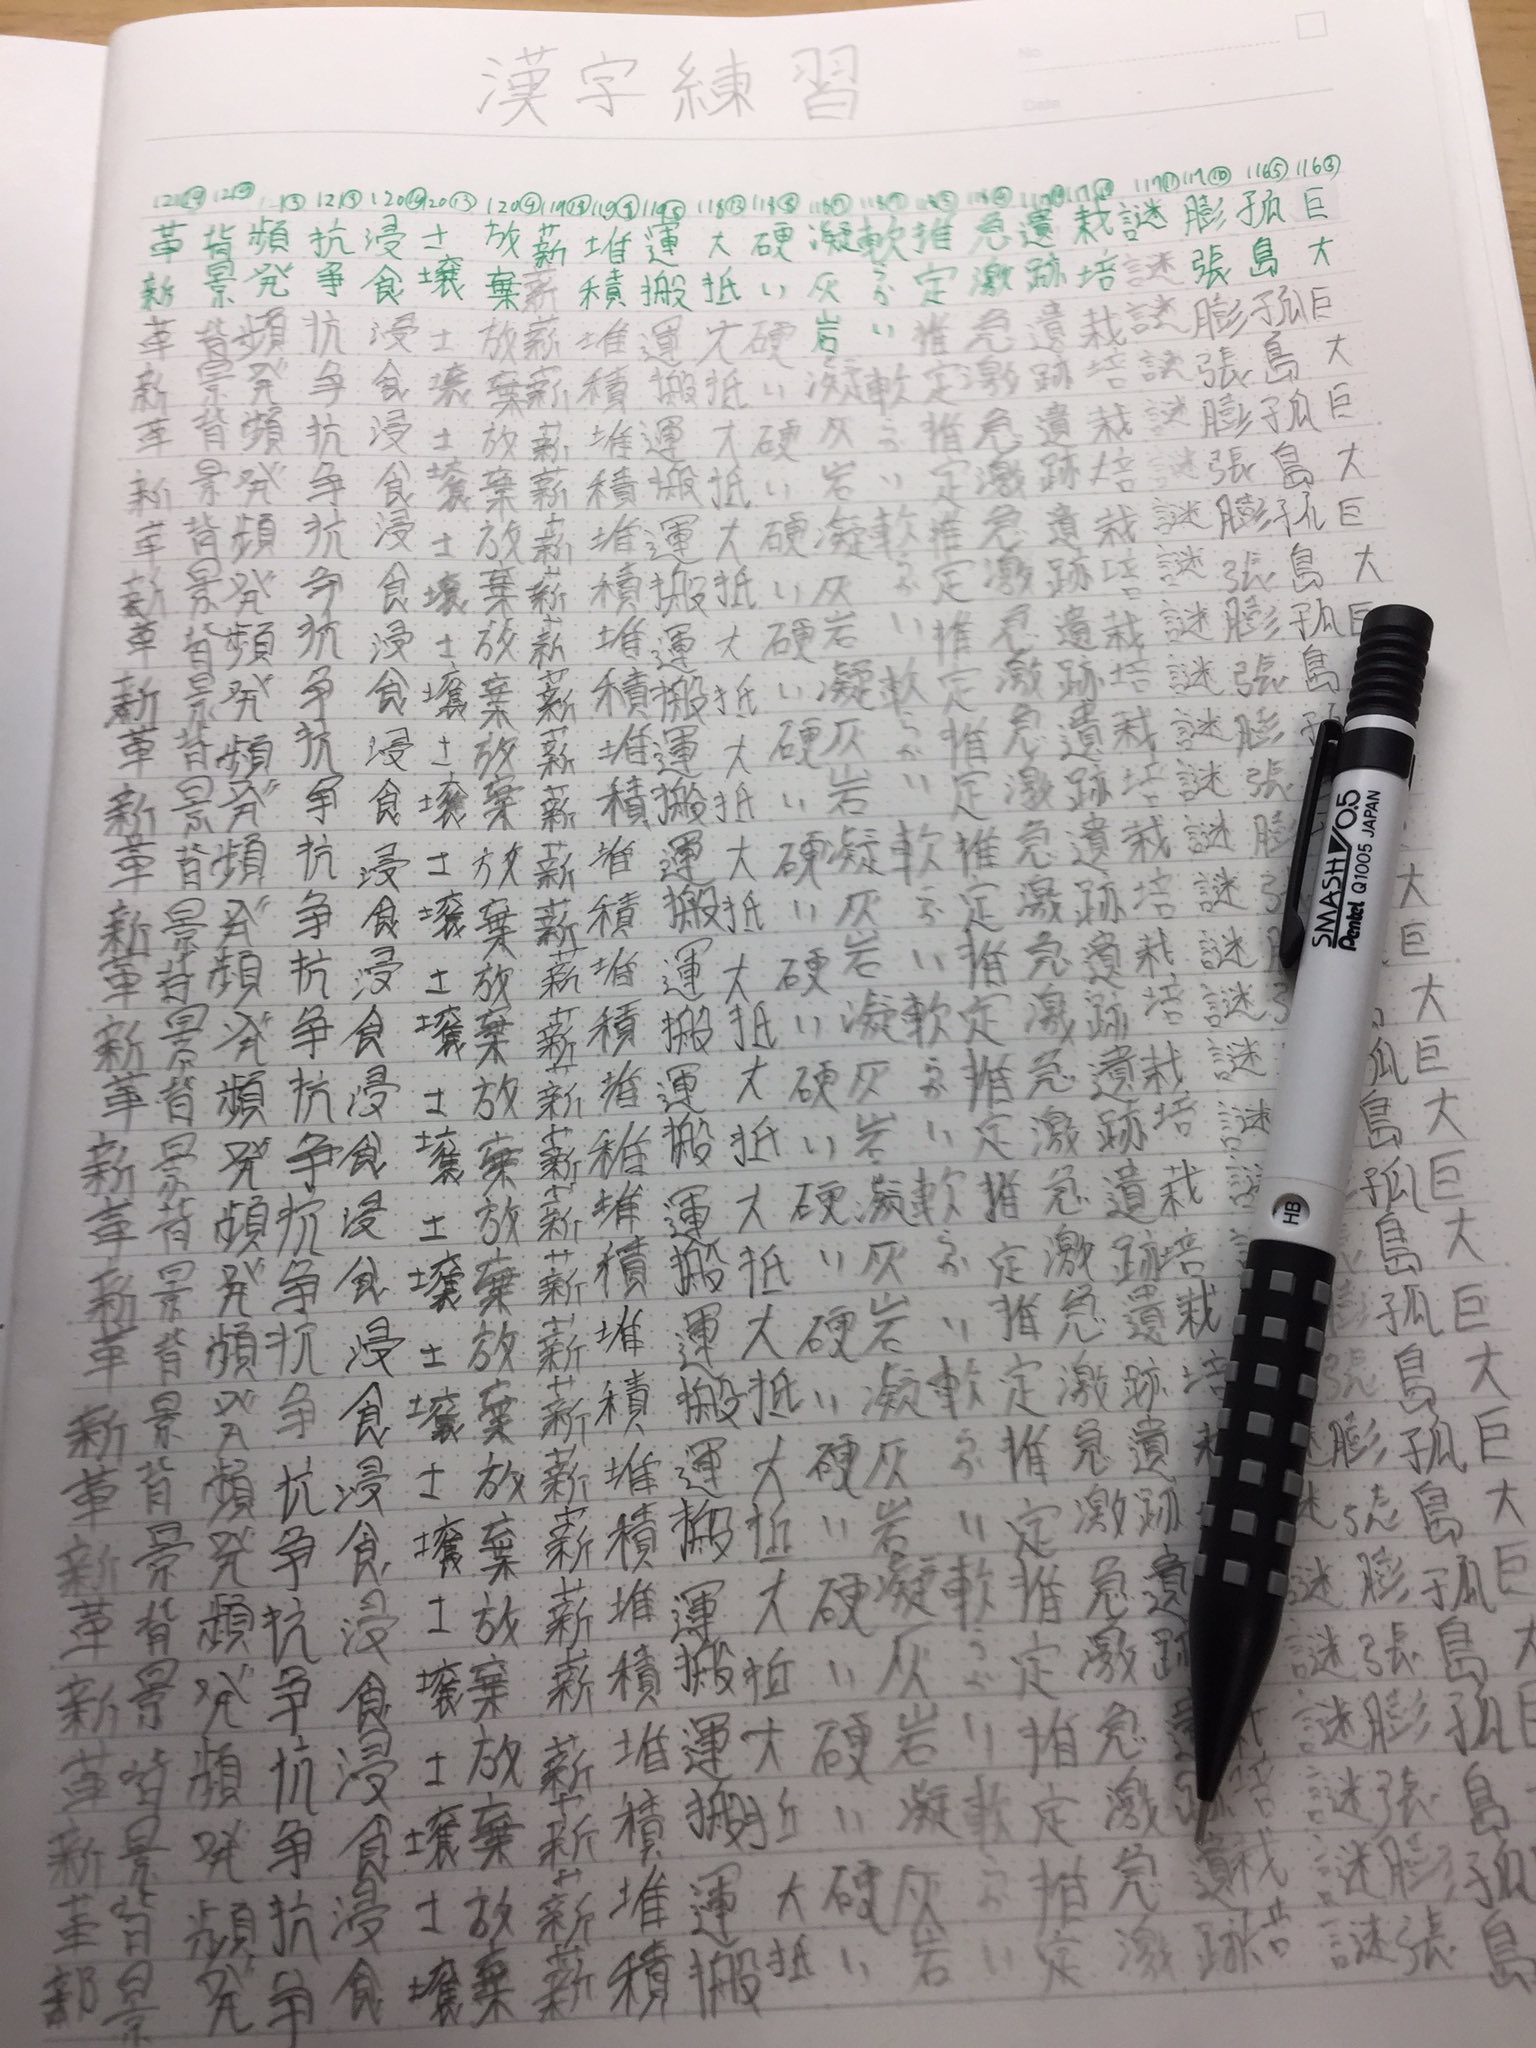 漢字練習
No.
Date
116③
116⑤
117⑩
117⑪
巨大巨大巨大巨大巨大巨大巨大巨大巨大巨大巨
孤島孤島孤島孤島孤島孤島孤島孤島孤島孤島孤島孤島
膨張膨張膨張膨張膨張膨張膨張膨張膨張膨張膨張
謎謎謎謎謎謎謎謎謎謎謎謎謎謎謎謎謎謎謎謎謎謎謎謎謎謎
栽培栽培栽培栽培栽培栽培栽培栽培栽培栽培栽培栽培
遺跡遺跡遺跡遺跡遺跡遺跡遺跡遺跡遺跡遺跡遺跡遺跡遺跡遺跡
急激急激急激急激急激急激急激急激急激急激急激急激急激急激急激
推定推定推定推定推定推定推定推定推定推定推定推定推定推定推定
軟かい軟かい軟かい軟かい軟かい軟かい軟かい軟かい軟かい軟かい
凝灰岩凝灰岩凝灰岩凝灰岩凝灰岩凝灰岩凝灰岩凝灰岩凝灰岩凝灰岩
硬い硬い硬い硬い硬い硬い硬い硬い硬い硬い硬い硬い硬い硬い硬い
大抵大抵大抵大抵大抵大抵大抵大抵大抵大抵大抵大抵大抵大抵大抵
運搬運搬運搬運搬運搬運搬運搬運搬運搬運搬運搬運搬運搬運搬運搬
堆積堆積堆積堆積堆積堆積堆積堆積堆積堆積堆積堆積堆積堆積堆積
薪薪薪薪薪薪薪薪薪薪薪薪薪薪薪薪薪薪薪薪薪薪薪薪薪薪薪薪薪薪
放棄放棄放棄放棄放棄放棄放棄放棄放棄放棄放棄放棄放棄放棄放棄
土壌土壌土壌土壌土壌土壌土壌土壌土壌土壌土壌土壌土壌土壌土壌
浸食浸食浸食浸食浸食浸食浸食浸食浸食浸食浸食浸食浸食浸食浸食
抗争抗争抗争抗争抗争抗争抗争抗争抗争抗争抗争抗争抗争抗争抗争
頻発頻発頻発頻発頻発頻発頻発頻発頻発頻発頻発頻発頻発頻発頻発
背景背景背景背景背景背景背景背景背景背景背景背景背景背景背景
革新革新革新革新革新革新革新革新革新革新革新革新革新革新革新
SMASH 0.5
Pentel Q1005 JAPAN
HB